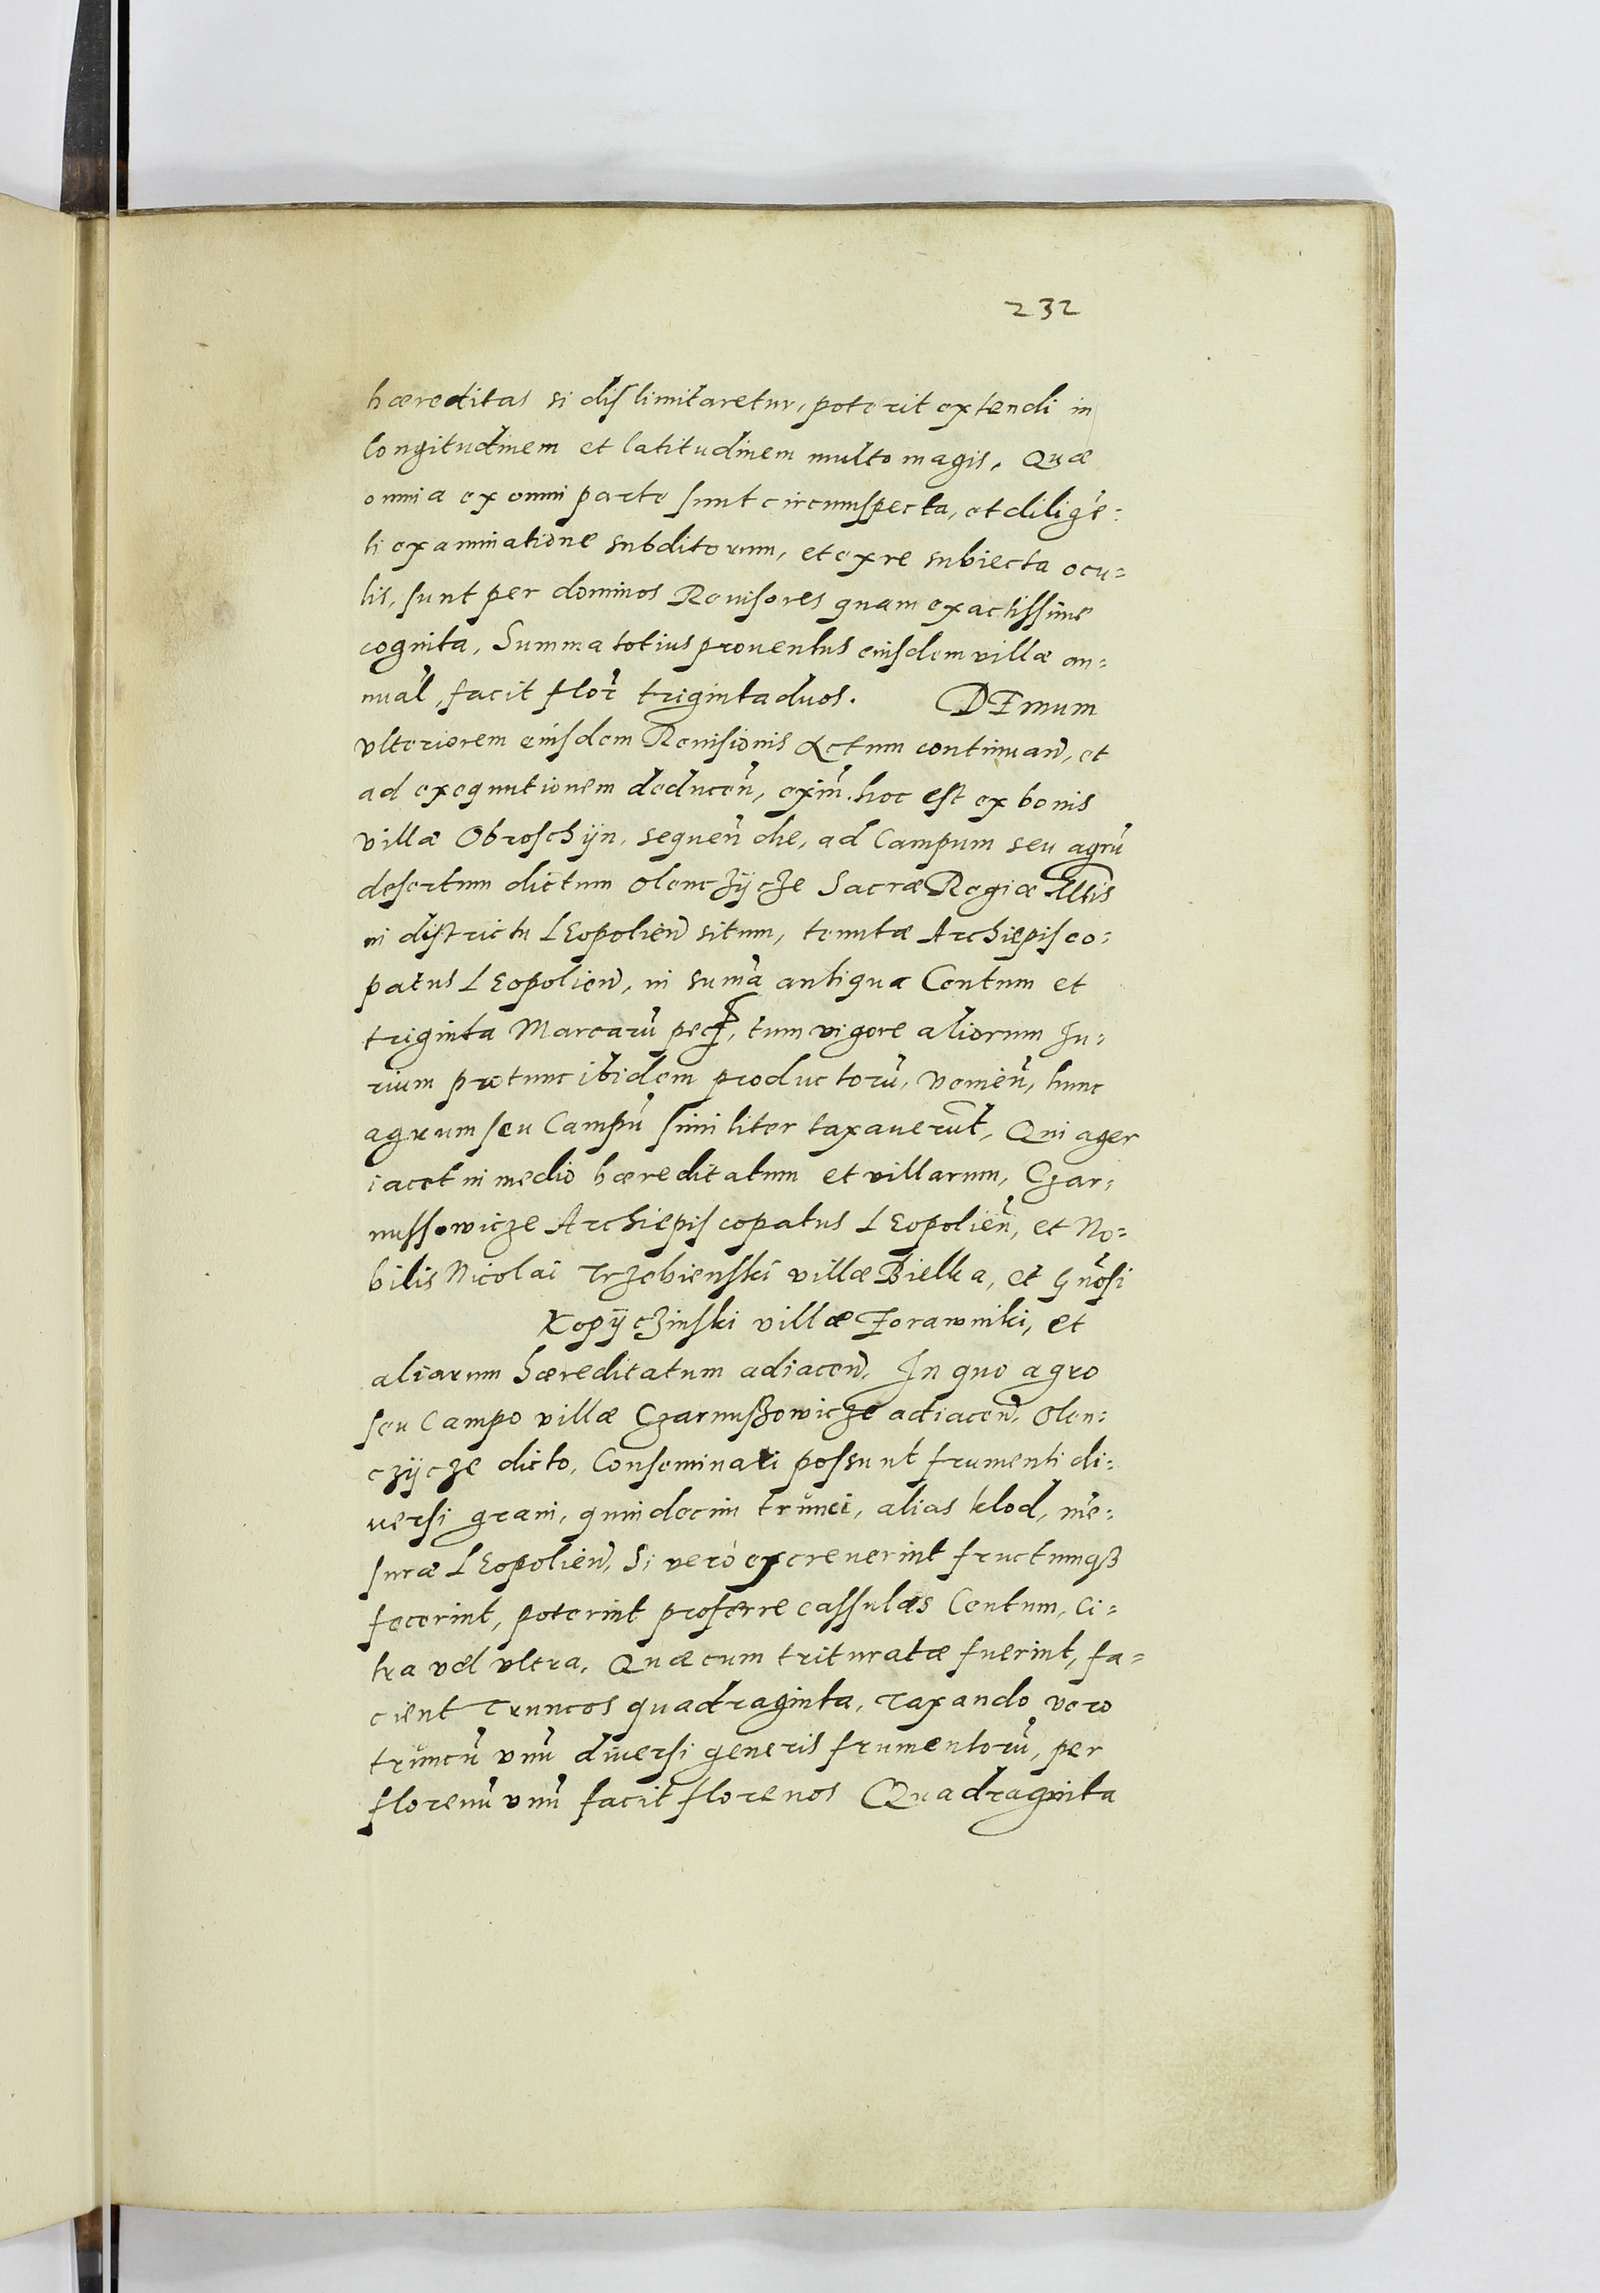 232
hæreditas si dislimitaretur, poterit extendi in
longitudinem et latitudinem multo magis. Quæ
omnia ex omni parte sunt circumspecta, et diligē=
ti examinatione subditorum, et ex re subiecta ocu=
lis, sunt per dominos Reuisores quam exactissime
cognita, Summa totius prouentus eiusdem villæ an=
nual, facit flor̄ triginta duos. DEmum
vlteriorem eiusdem Reuisionis Actum continuan̄, et
ad exequutionem deducen̄, exin̄. hoc est ex bonis
villæ Obroschÿn, sequen̄ die, ad Campum seu agrū
desertum dictum Olenczÿcze Sacræ Regiæ Mtis
in districtu LEopolien̄ situm, tenutæ Archiepisco=
patus LEopolien̄, in sum̄a antiqua Centum et
triginta Marcarū pec, tum vigore aliorum Iu=
rium protunc ibidem productorū, venien̄, hunc
agrum seu Campū similiter taxauerūt, Qui ager
iacet in medio hæreditatum et villarum, Czar=
nussowicze Archiepiscopatus LEopolien̄, et No=
bilis Nicolai Trzebienski villæ Bielka, et Gn̄osi
Kopÿczinski villæ Zorawniki, et
aliarum hæreditatum adiacen̄. In quo agro
seu Campo villæ Czarnuszowicze adiacen̄, Olen=
czÿcze dicto, Conseminari possunt frumenti di=
uersi grani, quindecim trunci, alias klod, mē=
suræ LEopolien̄, Si verò excreuerint fructumqz
fecerint, poterint proferre cassulas Centum, Ci=
tra vel vltra, Quæ cum trituratæ fuerint, fa=
cient Truncos quadraginta, Taxando vero
truncū vnū diuersi generis frumentorū, per
florenū vnū facit florenos Quadraginta